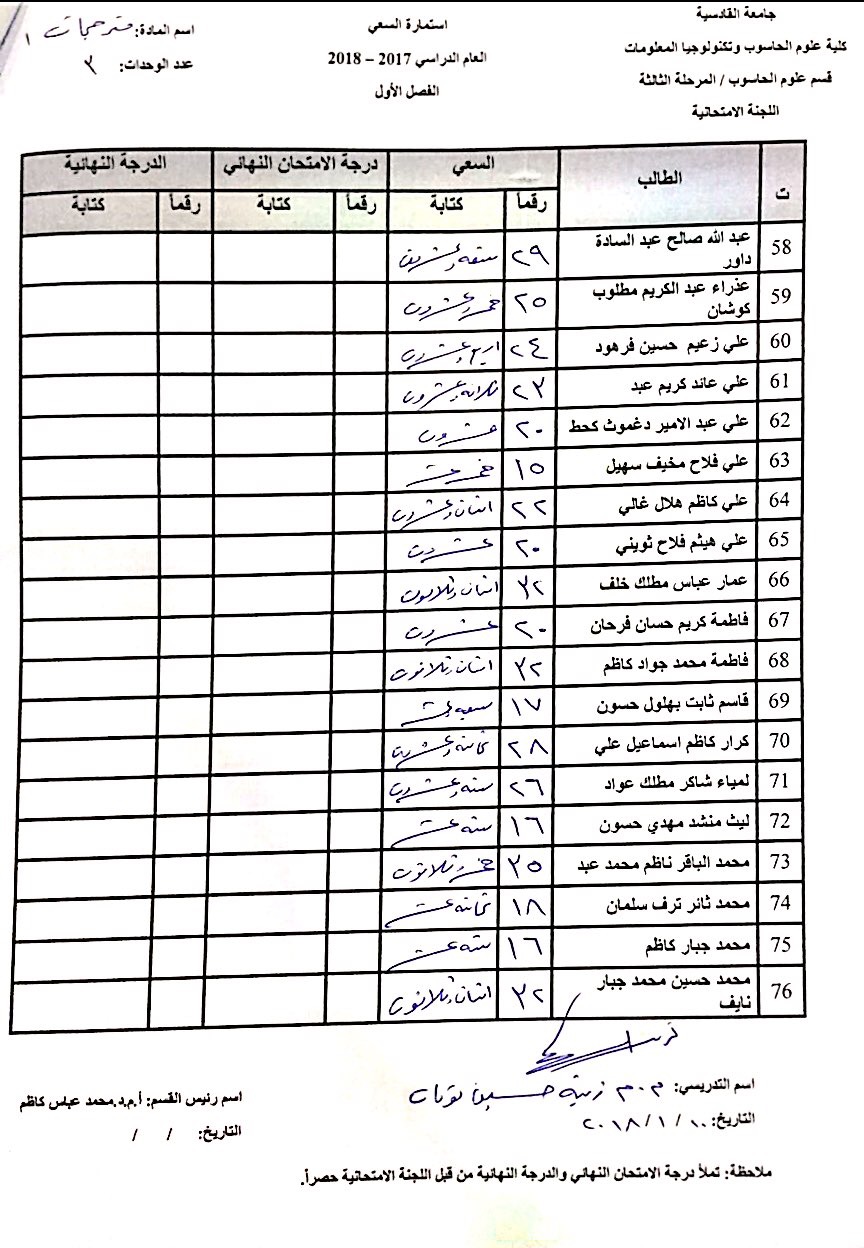 جامعة القادسية
كلية علوم الحاسوب وتكنولوجيا المعلومات
قسم علوم الحاسوب / المرحلة الثالثة
اللجنة الامتحانية
استمارة السعي
العام الدراسي 2017 – 2018
الفصل الأول
اسم المادة: مترجمات ١
عدد الوحدات: ٣
ت الطالب السعي درجة الامتحان النهائي الدرجة النهائية
رقماً كتابة رقماً كتابة رقماً كتابة
58 عبد الله صالح عبد السادة داور ٢٩ تسعة وعشرون
59 عذراء عبد الكريم مطلوب كوشان ٢٥ خمس وعشرون
60 علي زعيم حسين فرهود ٢٤ اربع وعشرون
61 علي عائد كريم عبد ٢٣ ثلاثة وعشرون
62 علي عبد الامير دغموث كحط ٢٠ عشرون
63 علي فلاح مخيف سهيل ١٥ خمس عشر
64 علي كاظم هلال غالي ٢٢ اثنان وعشرون
65 علي هيثم فلاح ثويني ٢٠ عشرون
66 عمار عباس مطلك خلف ٣٢ اثنان وثلاثون
67 فاطمة كريم حسان فرحان ٢٠ عشرون
68 فاطمة محمد جواد كاظم ٣٢ اثنان وثلاثون
69 قاسم ثابت بهلول حسون ١٧ سبعة عشر
70 كرار كاظم اسماعيل علي ٢٨ ثمانية وعشرون
71 لمياء شاكر مطلك عواد ٢٦ ستة وعشرون
72 ليث منشد مهدي حسون ١٦ ستة عشر
73 محمد الباقر ناظم محمد عبد ٣٥ خمس وثلاثون
74 محمد ثائر ترف سلمان ١٨ ثمانية عشر
75 محمد جبار كاظم ١٦ ستة عشر
76 محمد حسين محمد جبار نايف ٣٢ اثنان وثلاثون
اسم التدريسي: م.م زينة حسين
التاريخ: ١٠ / ١ / ٢٠١٨
اسم رئيس القسم: أ.م.د.محمد عباس كاظم
التاريخ: / /
ملاحظة: تملأ درجة الامتحان النهائي والدرجة النهائية من قبل اللجنة الامتحانية حصراً.